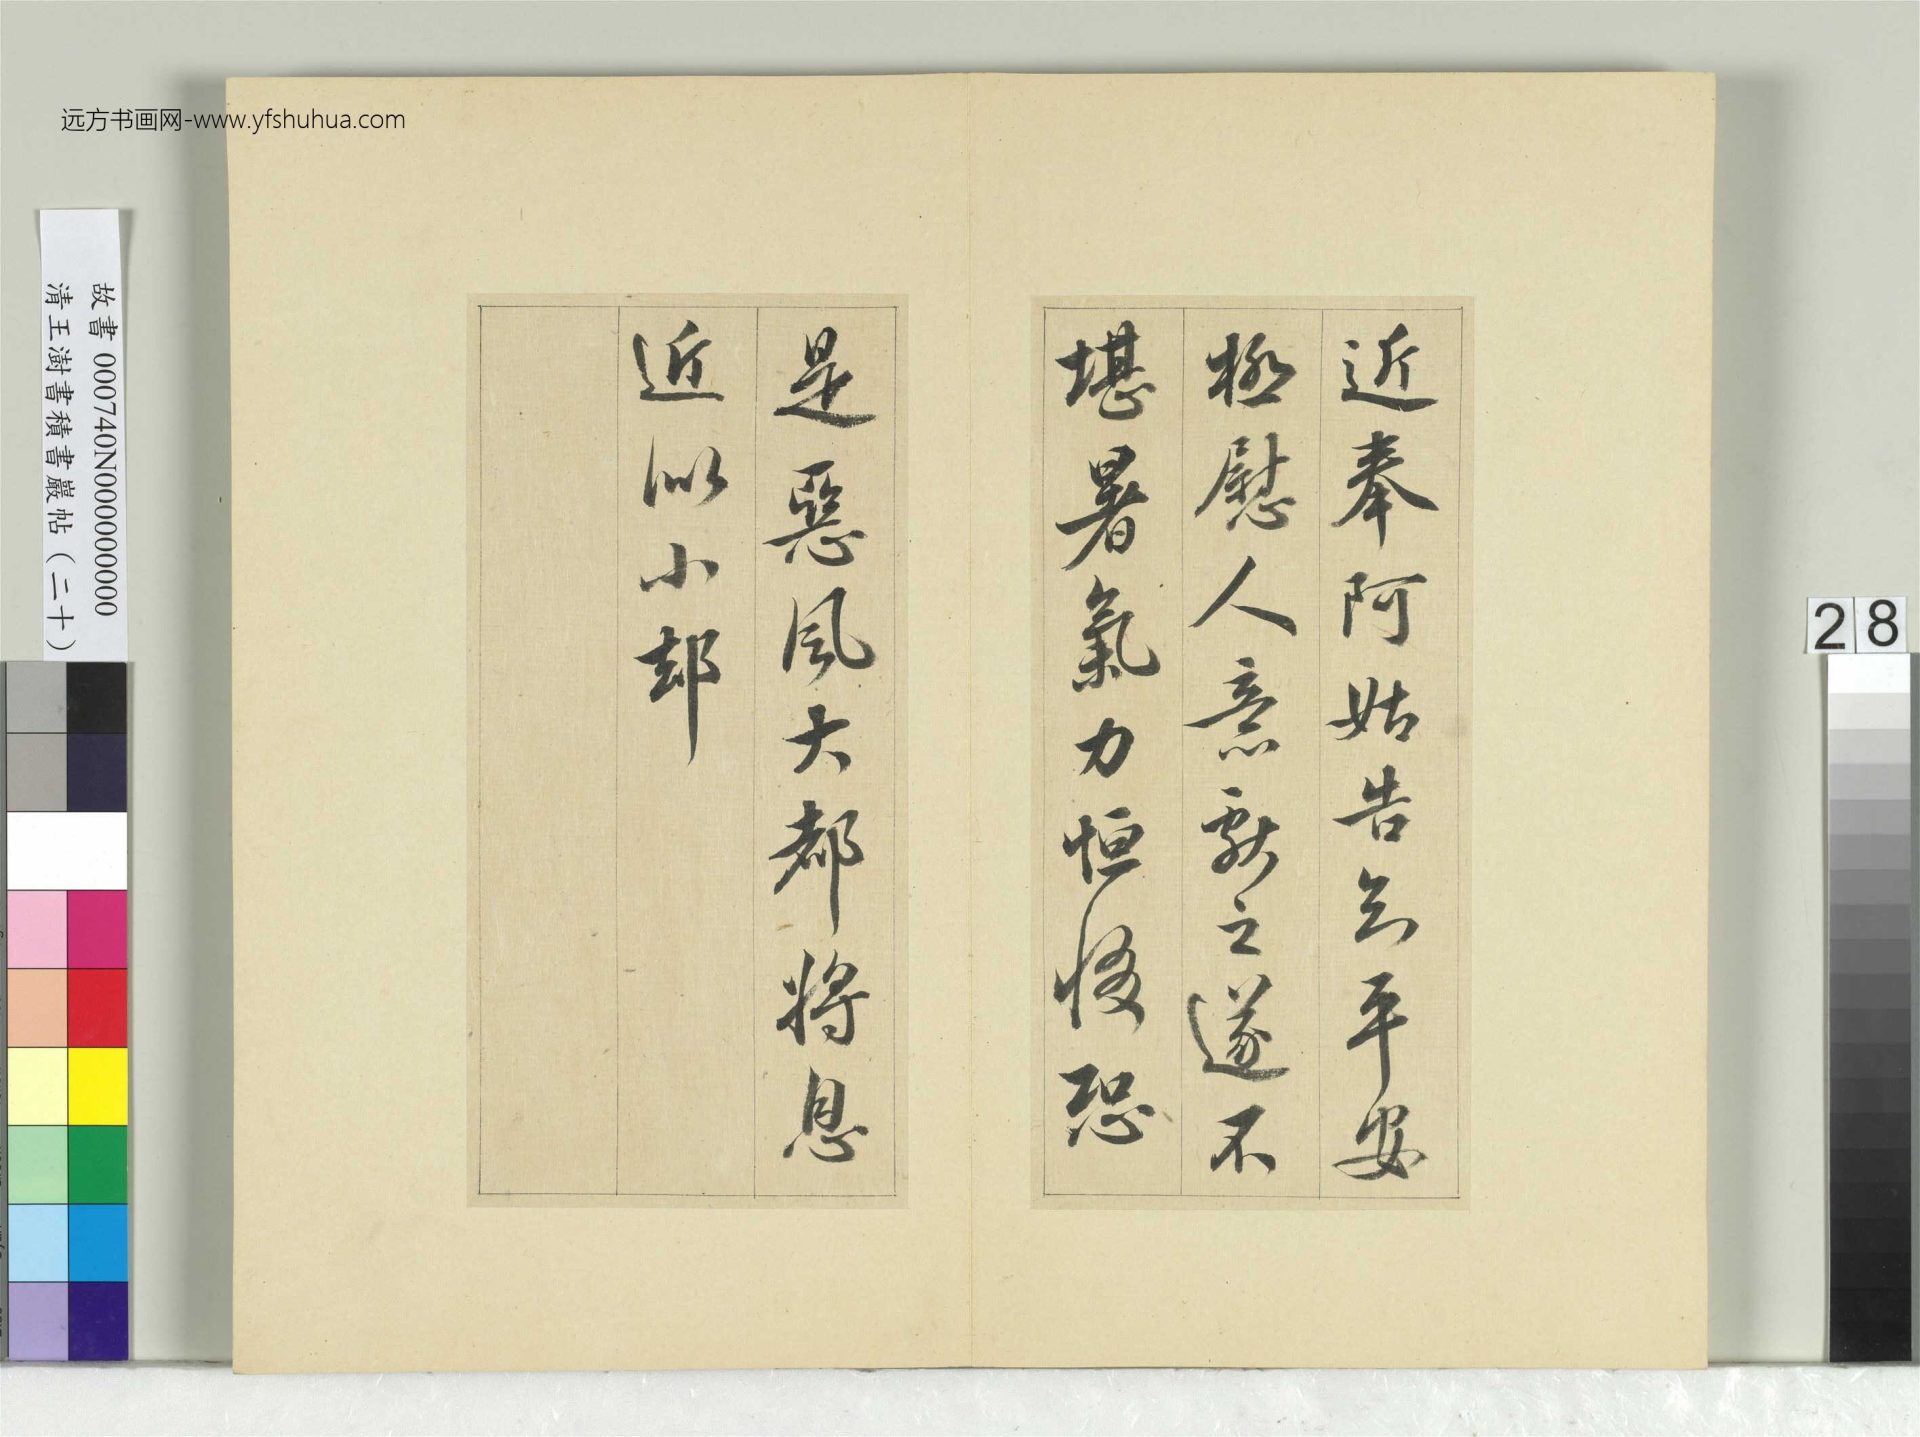 远方书画网-www.yfshuhua.com
故書 000740N000000000
清王澍書積書巖帖（二十）
28
近奉阿姑告云平安
極慰人意獻之遂不
堪暑氣力恒惙恐
是惡風大都將息
近似小却